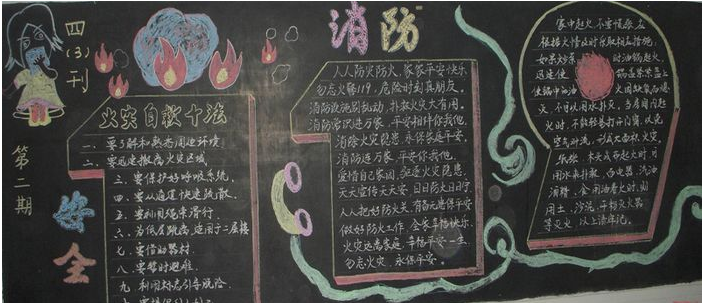 四(3)刊
第二期
安全
消防
火灾自救十法
一、要了解和熟悉周边环境
二、要迅速撤离火灾区域
三、要保护好呼吸系统。
四、要从通道快速疏散。
五、要利用绳索滑行
六、为低层跳离,适用于二层楼
七、要借助器材
八、要暂时避难。
九、利用标志引导脱险
人人防灾防火、家家平安快乐
勿忘火警119,危险时刻真朋友。
消防设施别乱动,扑救火灾大有用。
消防常识进万家,平安相伴你我他。
消除火灾隐患,永保家庭平安。
消防进万家,平安你我他。
爱惜自己家园,驱逐火灾隐患。
天天宣传天天安,日日防火日日宁。
人人把好防火关,有备无患保平安
做好防火工作,全家幸福快乐
火灾远离家庭,幸福平安一生。
勿忘火灾,永保平安。
家中起火,不要慌张,应
根据火情及时采取相应措施:
如果炒菜时油锅起火,
迅速使锅盖紧紧盖上
使锅中油火因缺氧而熄
灭,不可以用水扑灭,当房间内起
火时,不能轻易打开门窗,以免
空气对流,形成大面积火灾。
用水来扑救,因电器、汽油
酒精、食用油着火时,则
用土、沙泥、干粉灭火器
等灭火,以上请牢记。